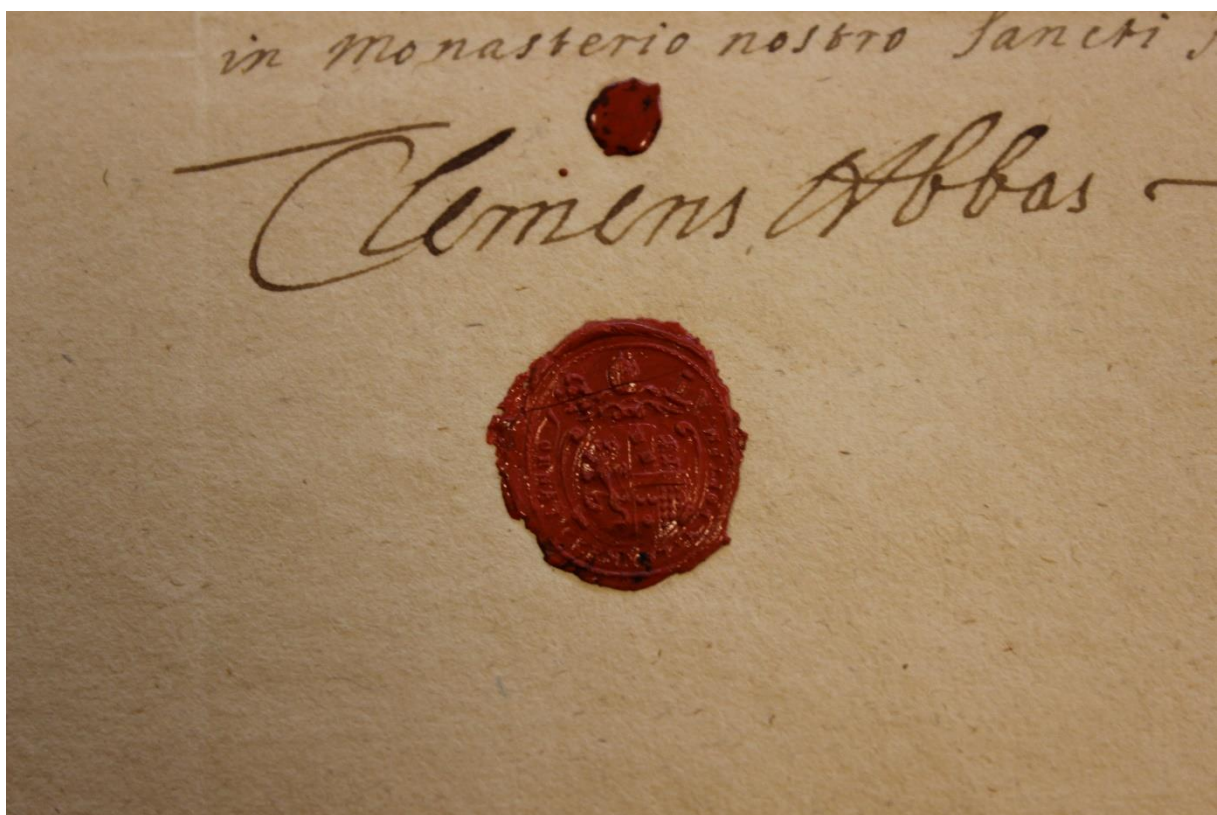 in Monasterio nostro Sancti
Clemens Abbas